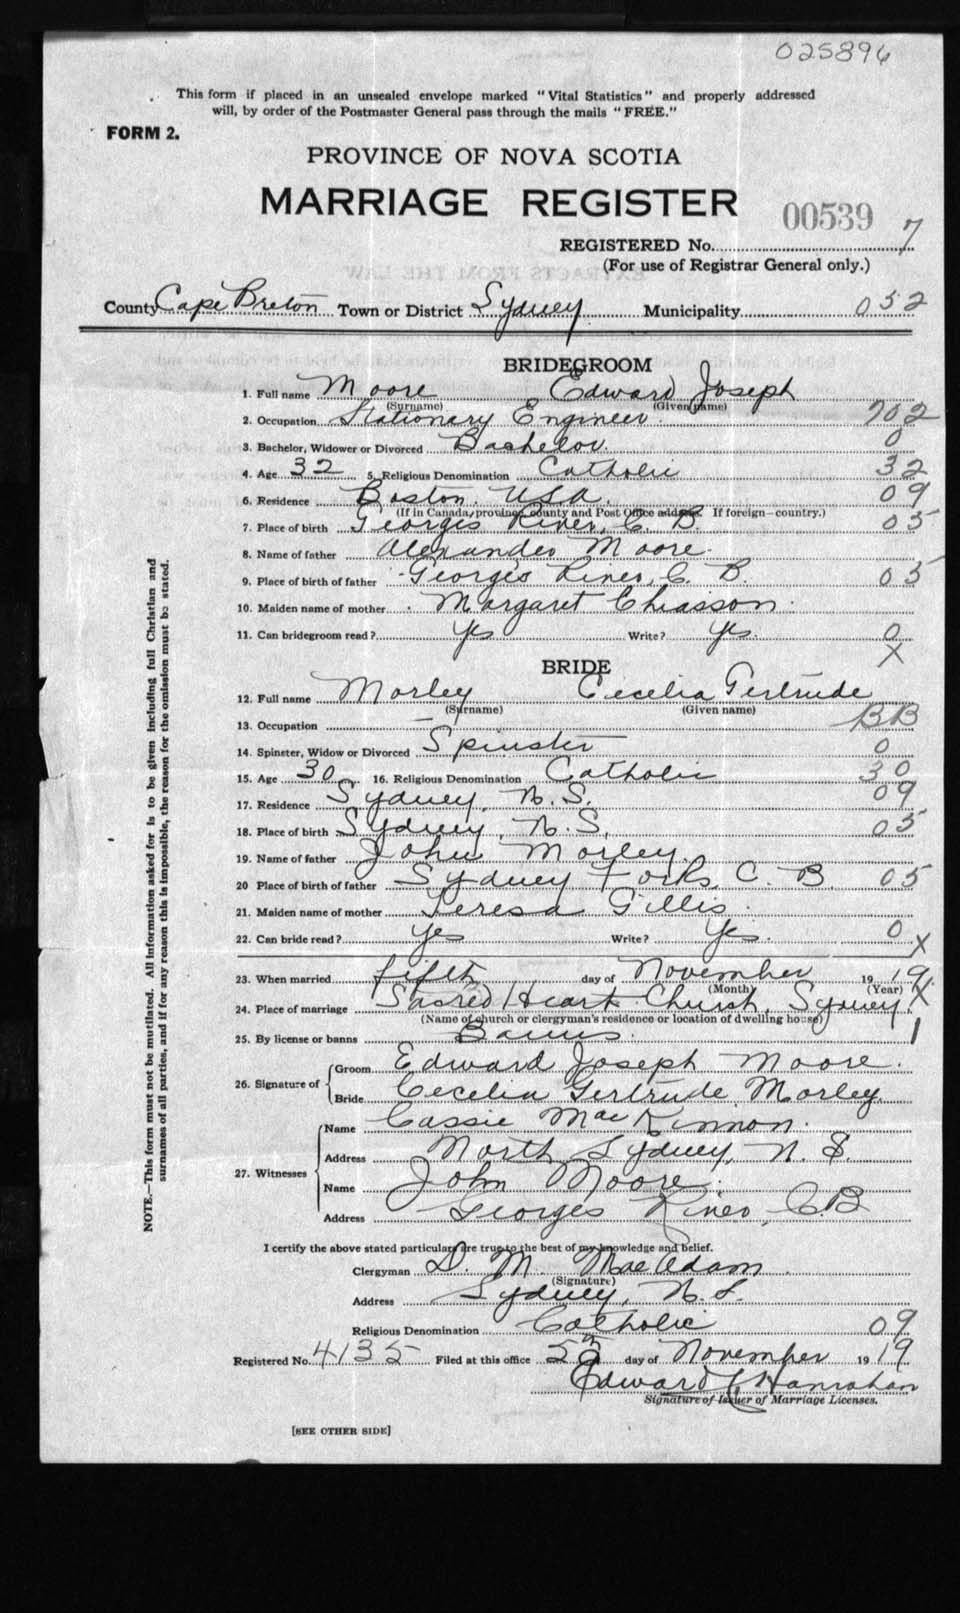 025896
This form if placed in an unsealed envelope marked "Vital Statistics" and properly addressed
will, by order of the Postmaster General pass through the mails "FREE."
FORM 2.
PROVINCE OF NOVA SCOTIA
MARRIAGE REGISTER
00539 7
REGISTERED No.
(For use of Registrar General only.)
County Cape Breton Town or District Sydney Municipality 052
BRIDEGROOM
1. Full name Moore Edward Joseph
(Surname) (Given name)
2. Occupation Stationery Engineer 702
3. Bachelor, Widower or Divorced Bachelor 0
4. Age 32 5. Religious Denomination Catholic 32
6. Residence Boston, USA. 09
(If in Canada, province, county and Post Office address. If foreign—country.)
7. Place of birth Georges River, C. B. 05
8. Name of father Alexander Moore.
9. Place of birth of father Georges River, C. B. 05
10. Maiden name of mother Margaret Chiasson
11. Can bridegroom read? Yes Write? Yes. 0
X
BRIDE
12. Full name Morley Cecelia Gertrude
(Surname) (Given name)
13. Occupation — BB
14. Spinster, Widow or Divorced Spinster 0
15. Age 30 16. Religious Denomination Catholic 30
17. Residence Sydney, N.S. 09
18. Place of birth Sydney, N.S. 05
19. Name of father John Morley.
20 Place of birth of father Sydney Forks, C. B. 05
21. Maiden name of mother Teresa Gillis.
22. Can bride read? Yes Write? Yes. 0 X
23. When married fifth day of November 1919.
(Month) (Year) X
24. Place of marriage Sacred Heart Church, Sydney.
(Name of church or clergyman's residence or location of dwelling house)
25. By license or banns Banns. 1
26. Signature of
Groom Edward Joseph Moore.
Bride Cecelia Gertrude Morley.
27. Witnesses
Name Cassie MacKinnon.
Address North Sydney, N. S.
Name John Moore.
Address Georges River, C.B
I certify the above stated particulars are true to the best of my knowledge and belief.
Clergyman D. M. MacAdam
(Signature)
Address Sydney, N.S.
Religious Denomination Catholic 09
Registered No. 4135 Filed at this office 5th day of November 1919
Edward C Hanrahan
Signature of Issuer of Marriage Licenses.
[SEE OTHER SIDE]
NOTE.—This form must not be mutilated. All information asked for is to be given including full Christian and
surnames of all parties, and if for any reason this is impossible, the reason for the omission must be stated.